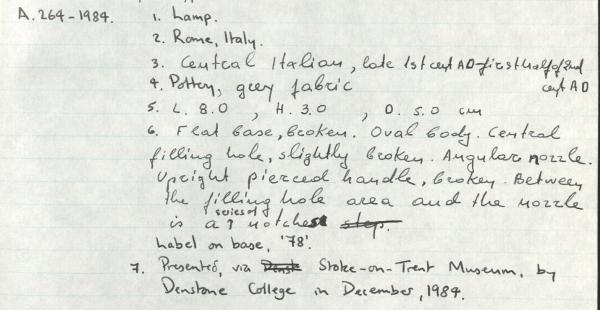 A.264-1984. 1. Lamp.
2. Rome, Italy.
3. Central Italian, late 1st cent AD-first half of 2nd
cent AD
4. Pottery, grey fabric
5. L. 8.0 , H. 3.0 , D. 5.0 cm
6. Flat base, broken. Oval body. Central
filling hole, slightly broken. Angular nozzle.
Upright pierced handle, broken. Between
the filling hole area and the nozzle
series of
is a notches step.
Label on base, '78'.
7. Presented, via Denst Stoke-on-Trent Museum, by
Denstone College in December, 1984.